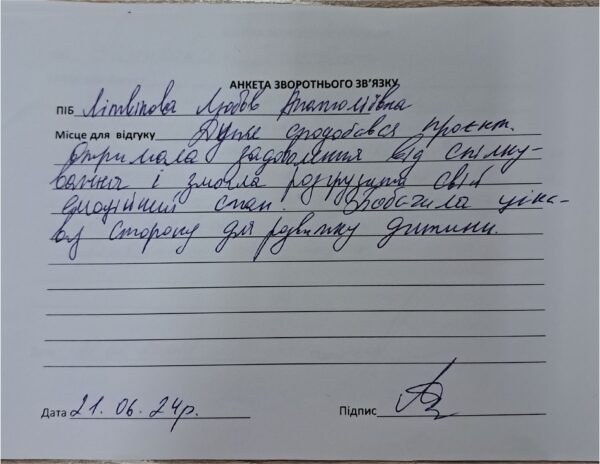 АНКЕТА ЗВОРОТНЬОГО ЗВ'ЯЗКУ
ПІБ Літвінова Любов Анатоліївна
Місце для відгуку Дуже сподобався проєкт.
Отримала задоволення від спілку-
вання і змогла розгрузити свій
емоційний стан. Побачила ціка-
ву сторону для розвитку дитини.
Дата 21.06.24р. Підпис